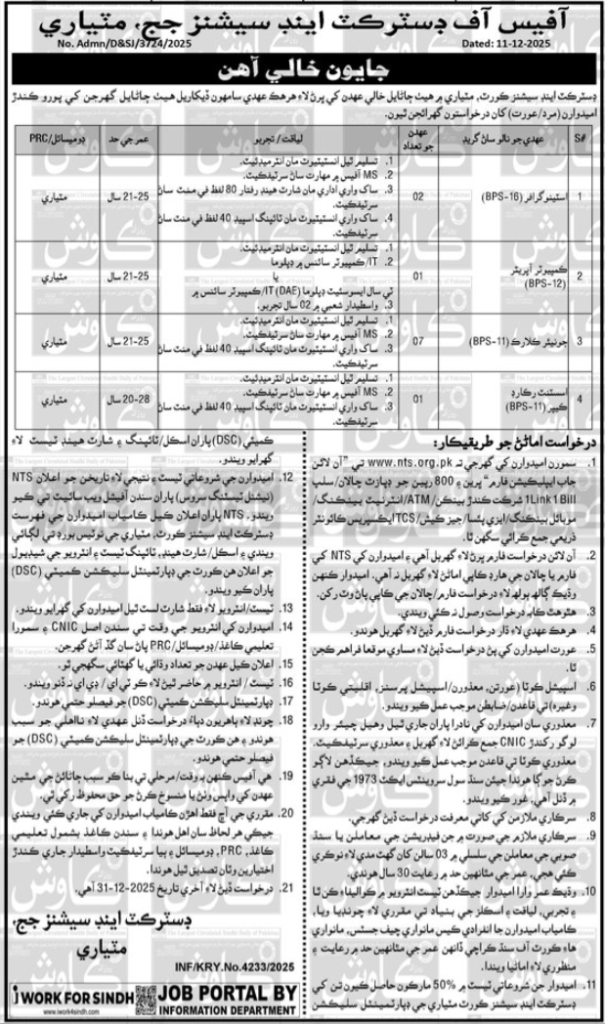 آفيس آف ڊسٽرڪٽ اينڊ سيشنز جج، مٽياري
No. Admn/D&SJ/3724/2025
Dated: 11-12-2025
جايون خالي آهن
ڊسٽرڪٽ اينڊ سيشنز ڪورٽ، مٽياري ۾ هيٺ ڄاڻايل خالي عهدن کي ڀرڻ لاءِ هر هڪ عهدي سامهون ڏيکاريل هيٺ ڄاڻايل گهرجن کي پورو ڪندڙ
اميدوارن (مرد/عورت) کان درخواستون گهرائجن ٿيون.
S# عهدي جو نالو ساڻ گريڊ عهدن جو تعداد لياقت/ تجربو عمر جي حد ڊوميسائل/PRC
1 اسٽينو گرافر (BPS-16) 02 21-25 سال مٽياري
1. تسليم ٿيل انسٽيٽيوٽ مان انٽرميڊئيٽ.
2. MS آفيس ۾ مهارت ساڻ سرٽيفڪيٽ.
3. ساک واري اداري مان شارٽ هينڊ رفتار 80 لفظ في منٽ ساڻ
سرٽيفڪيٽ.
4. ساک واري انسٽيٽيوٽ مان ٽائپنگ اسپيڊ 40 لفظ في منٽ ساڻ
سرٽيفڪيٽ.
2 ڪمپيوٽر آپريٽر (BPS-12) 01 21-25 سال مٽياري
1. تسليم ٿيل انسٽيٽيوٽ مان انٽرميڊئيٽ.
2. IT/ڪمپيوٽر سائنس ۾ ڊپلوما
يا
ٽي سال ايسوسيئيٽ ڊپلوما IT (DAE)/ڪمپيوٽر سائنس ۾
3. واسطيدار شعبي ۾ 02 سال تجربو.
3 جونيئر ڪلارڪ (BPS-11) 07 21-25 سال مٽياري
1. تسليم ٿيل انسٽيٽيوٽ مان انٽرميڊئيٽ.
2. MS آفيس ۾ مهارت ساڻ سرٽيفڪيٽ.
3. ساک واري انسٽيٽيوٽ مان ٽائپنگ اسپيڊ 40 لفظ في منٽ ساڻ
سرٽيفڪيٽ.
4 اسسٽنٽ رڪارڊ ڪيپر (BPS-11) 01 20-28 سال مٽياري
1. تسليم ٿيل انسٽيٽيوٽ مان انٽرميڊئيٽ.
2. MS آفيس ۾ مهارت ساڻ سرٽيفڪيٽ.
3. ساک واري انسٽيٽيوٽ مان ٽائپنگ اسپيڊ 40 لفظ في منٽ ساڻ
سرٽيفڪيٽ.
درخواست اماڻڻ جو طريقيڪار:
1. سمورن اميدوارن کي گهرجي ته www.nts.org.pk تي "آن لائن
جاب ايپليڪيشن فارم" ڀرين ۽ 800 رپين جو ڊپازٽ چالان/سلپ
1Link 1Bill شرڪت ڪندڙ بينڪن/ATM/انٽرنيٽ بينڪنگ/
موبائل بينڪنگ/ايزي پئسا/جيز ڪيش/TCS ايڪسپريس ڪائونٽر
ذريعي جمع ڪرائي سگهن ٿا.
2. آن لائن درخواست فارم ڀرڻ لاءِ گهربل آهي ۽ اميدوارن کي NTS کي
فارم يا چالان جي هارڊ ڪاپي اماڻڻ لاءِ گهربل نه آهي. اميدوار ڪنهن
وڌيڪ ڳالهه ٻولهه لاءِ فارم/چالان جي ڪاپي پاڻ وٽ رکن.
3. هٿرهٿ ڪابه درخواست وصول نه ڪئي ويندي.
4. هر هڪ عهدي لاءِ ڌار درخواست فارم ڏيڻ لاءِ گهربل هوندو.
5. عورت اميدوارن کي پڻ درخواست ڏيڻ لاءِ مساوي موقعا فراهم ڪجن
ٿا.
6. اسپيشل ڪوٽا (عورتن، معذورن/اسپيشل پرسنز، اقليتي ڪوٽا
وغيره) تي قاعدن/ضابطن موجب عمل ڪيو ويندو.
7. معذوري ساڻ اميدوارن کي نادرا پاران جاري ٿيل وهيل چيئر وارو
لوگو رکندڙ CNIC جمع ڪرائڻ لاءِ گهربل ۽ معذوري سرٽيفڪيٽ.
معذوري ڪوٽا تي قاعدن موجب عمل ڪيو ويندو، جيڪڏهن لاڳو
ڪرڻ جوڳا هوندا جيئن سنڌ سول سرونٽس ايڪٽ 1973 جي فقري
۾ ڏنل آهي، غور ڪيو ويندو.
8. سرڪاري ملازمن کي کاتي معرفت درخواست ڏيڻ گهرجي.
9. سرڪاري ملازم جي صورت ۾ جن فيڊريشن جي معاملن يا سنڌ
صوبي جي معاملن جي سلسلي ۾ 03 سالن کان گهٽ مدي لاءِ نوڪري
ڪئي هجي، عمر جي مٿانهين حد ۾ رعايت 30 سال هوندي.
10. وڌيڪ عمر وارا اميدوار جيڪڏهن ٽيسٽ انٽرويو ۾ ڪواليفاءِ ڪن ٿا
۽ تجربي، لياقت ۽ اسڪلز جي بنياد تي مقرري لاءِ چونڊيا ويا،
ڪامياب اميدوارن جا انفرادي ڪيس مانواري چيف جسٽس، مانواري
هاءِ ڪورٽ آف سنڌ ڪراچي ڏانهن عمر جي مٿانهين حد ۾ رعايت ۽
منظوري لاءِ اماڻيا ويندا.
11. اميدوار جن شروعاتي ٽيسٽ ۾ 50% مارڪون حاصل ڪيون تن کي
ڊسٽرڪٽ اينڊ سيشنز ڪورٽ مٽياري جي ڊپارٽمينٽل سليڪشن
ڪميٽي (DSC) پاران اسڪل/ٽائپنگ ۽ شارٽ هينڊ ٽيسٽ لاءِ
گهرايو ويندو.
12. اميدوارن جي شروعاتي ٽيسٽ ۽ نتيجي لاءِ تاريخن جو اعلان NTS
(نيشنل ٽيسٽنگ سروس) پاران سندن آفيشل ويب سائيٽ تي ڪيو
ويندو. NTS پاران اعلان ڪيل ڪامياب اميدوارن جي فهرست
ڊسٽرڪٽ اينڊ سيشنز ڪورٽ، مٽياري جي نوٽيس بورڊ تي لڳائي
ويندي ۽ اسڪل/شارٽ هينڊ، ٽائپنگ ٽيسٽ ۽ انٽرويو جي شيڊيول
جو اعلان هن ڪورٽ جي ڊپارٽمينٽل سليڪشن ڪميٽي (DSC)
پاران ڪيو ويندو.
13. ٽيسٽ/انٽرويو لاءِ فقط شارٽ لسٽ ٿيل اميدوارن کي گهرايو ويندو.
14. اميدوارن کي انٽرويو جي وقت تي سندن اصل CNIC ۽ سمورا
تعليمي کاغذ/ڊوميسائل/PRC پاڻ ساڻ گڏ آڻڻ گهرجن.
15. اعلان ڪيل عهدن جو تعداد وڌائي يا گهٽائي سگهجي ٿو.
16. ٽيسٽ/انٽرويو ۾ حاضر ٿيڻ لاءِ ڪو ٽي اي/ڊي اي نه ڏنو ويندو.
17. ڊپارٽمينٽل سليڪشن ڪميٽي (DSC) جو فيصلو حتمي هوندو.
18. چونڊ لاءِ ٻاهريون دٻاءُ درخواست ڏنل عهدي لاءِ نااهلي جو سبب
هوندو ۽ هن ڪورٽ جي ڊپارٽمينٽل سليڪشن ڪميٽي (DSC) جو
فيصلو حتمي هوندو.
19. هي آفيس ڪنهن به وقت/مرحلي تي بنا ڪو سبب ڄاڻائڻ جي مٿين
عهدن کي واپس وٺڻ يا منسوخ ڪرڻ جو حق محفوظ رکي ٿي.
20. مقرري جي آڇ فقط اهڙن ڪامياب اميدوارن کي جاري ڪئي ويندي
جيڪي هر لحاظ سان اهل هوندا ۽ سندن کاغذ بشمول تعليمي
کاغذ، PRC، ڊوميسائل ۽ ٻيا سرٽيفڪيٽ واسطيدار جاري ڪندڙ
اختيارين وٽان تصديق ٿيل هوندا.
21. درخواست ڏيڻ لاءِ آخري تاريخ 31-12-2025 آهي.
ڊسٽرڪٽ اينڊ سيشنز جج،
مٽياري
INF/KRY.No.4233/2025
I WORK FOR SINDH
www.iwork4sindh.com
JOB PORTAL BY
INFORMATION DEPARTMENT